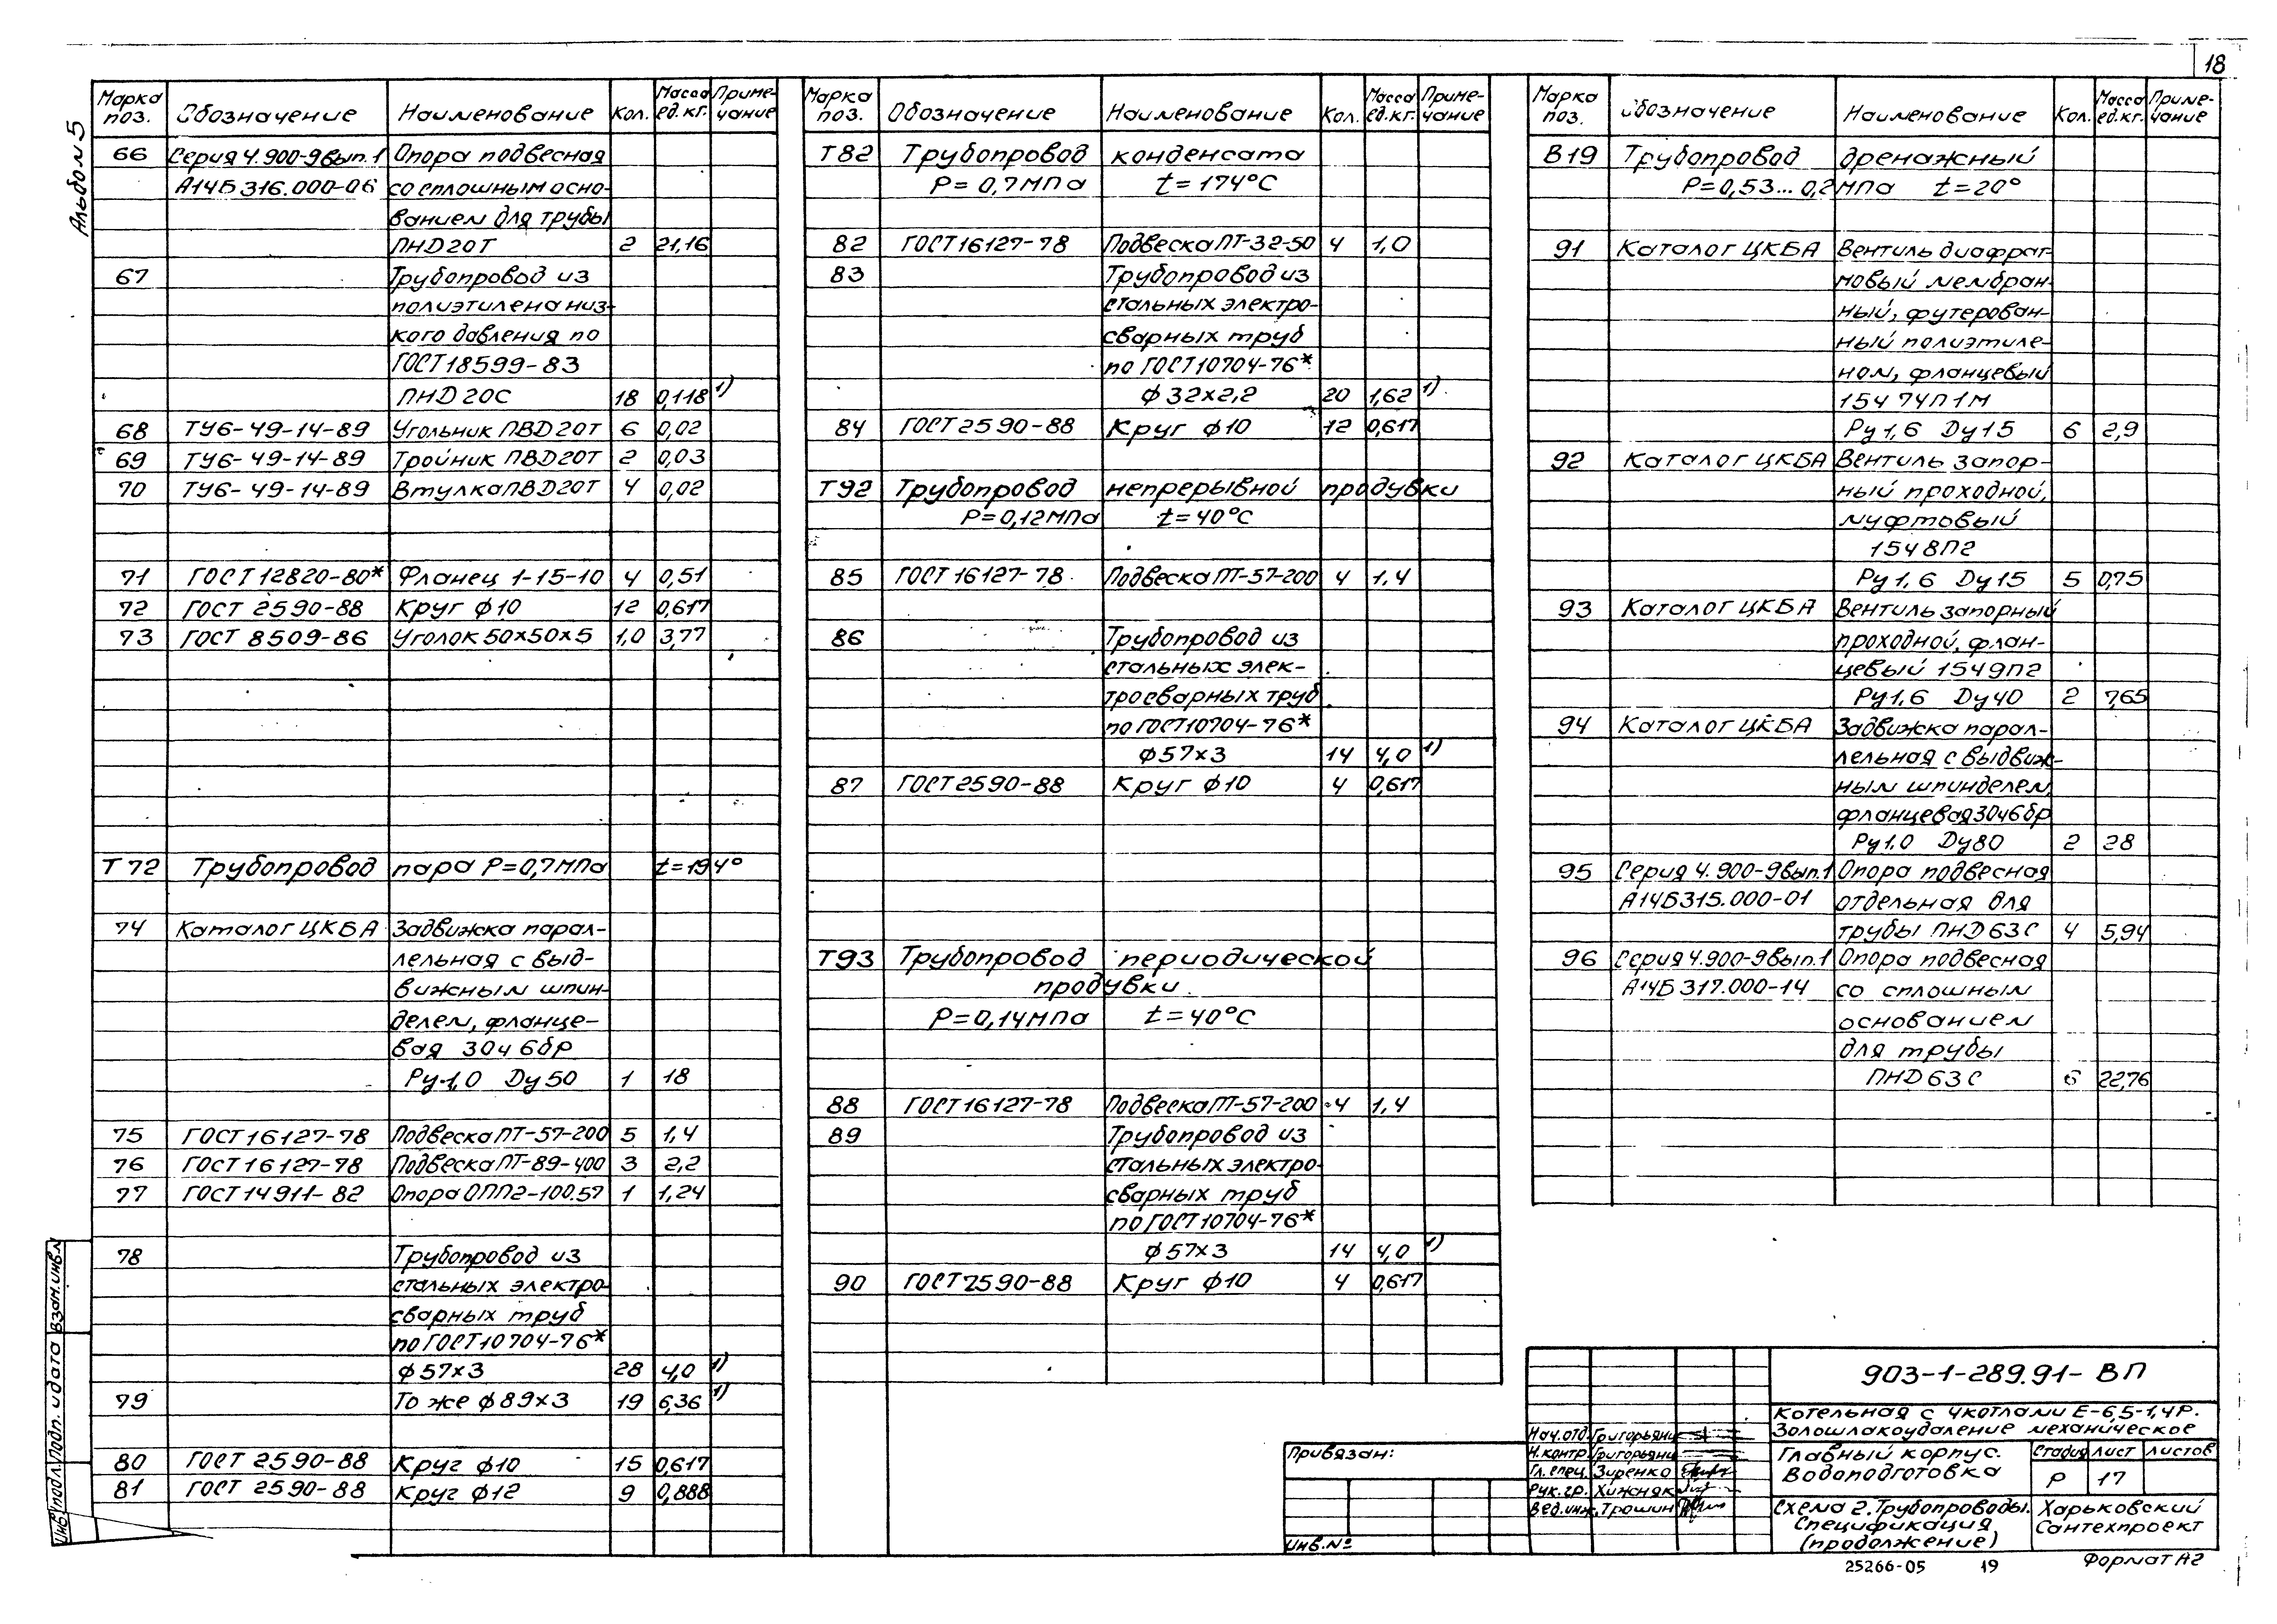 18
Альбом 5
Марка поз. Обозначение Наименование Кол. Масса ед.кг. Примечание
66 Серия 4.900-9 вып.1 Опора подвесная
А14Б316.000-06 со сплошным осно-
ванием для трубы
ПНД20Т 2 21,16
67 Трубопровод из
полиэтилена низ-
кого давления по
ГОСТ 18599-83
ПНД 20С 18 0,118 1)
68 ТУ6-49-14-89 Угольник ПВД20Т 6 0,02
69 ТУ6-49-14-89 Тройник ПВД20Т 2 0,03
70 ТУ6-49-14-89 Втулка ПВД20Т 4 0,02
71 ГОСТ 12820-80* Фланец 1-15-10 4 0,51
72 ГОСТ 2590-88 Круг ф10 12 0,617
73 ГОСТ 8509-86 Уголок 50х50х5 1,0 3,77
Т72 Трубопровод пара Р=0,7МПа t=194°
74 Каталог ЦКБА Задвижка парал-
лельная с выд-
вижным шпин-
делем, фланце-
вая 30ч6бр
Ру1,0 Ду50 1 18
75 ГОСТ 16127-78 Подвеска ПТ-57-200 5 1,4
76 ГОСТ 16127-78 Подвеска ПТ-89-400 3 2,2
77 ГОСТ 14911-82 Опора ОПП2-100.57 1 1,24
78 Трубопровод из
стальных электро-
сварных труб
по ГОСТ 10704-76*
ф57х3 28 4,0 1)
79 То же ф89х3 19 6,36 1)
80 ГОСТ 2590-88 Круг ф10 15 0,617
81 ГОСТ 2590-88 Круг ф12 9 0,888
Марка поз. Обозначение Наименование Кол. Масса ед.кг. Примечание
Т82 Трубопровод конденсата
Р=0,7МПа t=174°С
82 ГОСТ 16127-78 Подвеска ПТ-32-50 4 1,0
83 Трубопровод из
стальных электро-
сварных труб
по ГОСТ 10704-76*
ф32х2,2 20 1,62 1)
84 ГОСТ 2590-88 Круг ф10 12 0,617
Т92 Трубопровод непрерывной продувки
Р=0,12МПа t=40°С
85 ГОСТ 16127-78 Подвеска ПТ-57-200 4 1,4
86 Трубопровод из
стальных элек-
тросварных труб
по ГОСТ 10704-76*
ф57х3 14 4,0 1)
87 ГОСТ 2590-88 Круг ф10 4 0,617
Т93 Трубопровод периодической
продувки
Р=0,14МПа t=40°С
88 ГОСТ 16127-78 Подвеска ПТ-57-200 4 1,4
89 Трубопровод из
стальных электро-
сварных труб
по ГОСТ 10704-76*
ф57х3 14 4,0 1)
90 ГОСТ 2590-88 Круг ф10 4 0,617
Марка поз. Обозначение Наименование Кол. Масса ед.кг. Примечание
В19 Трубопровод дренажный
Р=0,53...0,2МПа t=20°
91 Каталог ЦКБА Вентиль диафраг-
мовый мембран-
ный, футерован-
ный полиэтиле-
ном, фланцевый
15ч 74П1М
Ру1,6 Ду15 6 2,9
92 Каталог ЦКБА Вентиль запор-
ный проходной,
муфтовый
15ч8П2
Ру1,6 Ду15 5 0,75
93 Каталог ЦКБА Вентиль запорный
проходной, флан-
цевый 15ч9П2
Ру1,6 Ду40 2 7,65
94 Каталог ЦКБА Задвижка парал-
лельная с выдвиж-
ным шпинделем,
фланцевая 30ч6бр
Ру1,0 Ду80 2 28
95 Серия 4.900-9 вып.1 Опора подвесная
А14Б315.000-01 отдельная для
трубы ПНД63С 4 5,94
96 Серия 4.900-9 вып.1 Опора подвесная
А14Б317.000-14 со сплошным
основанием
для трубы
ПНД63С 6 22,76
Взам.инв.№
Подп. и дата
Инв.№подл.
Привязан:
Инв.№
903-1-289.91-ВП
Котельная с 4 котлами Е-6,5-1,4Р.
Золошлакоудаление механическое
Нач.отд. Григорьянц
Н.контр. Григорьянц
Гл.спец. Зиренко
Рук.гр. Хижняк
Вед.инж. Трошин
Главный корпус.
Водоподготовка
Стадия Лист Листов
Р 17
Схема 2. Трубопроводы.
Спецификация
(продолжение)
Харьковский
Сантехпроект
25266-05 19 Формат А2